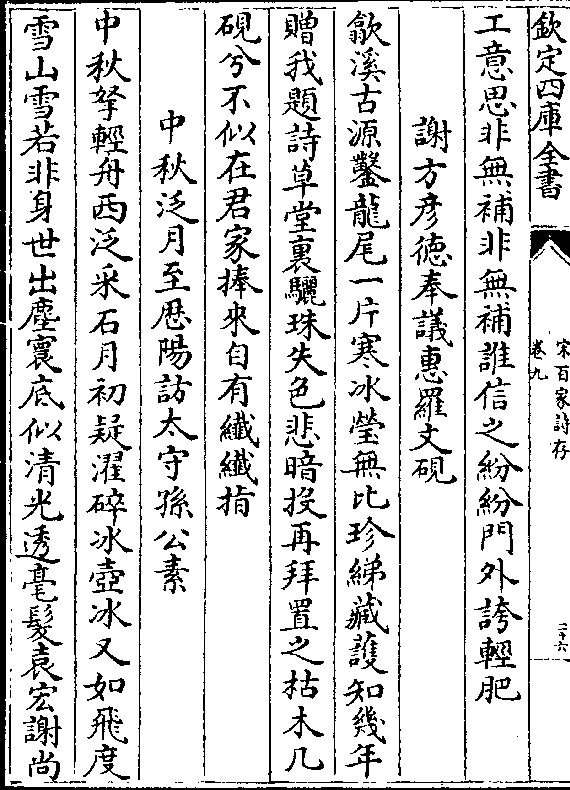 欽定四庫全書
宋百家詩存
卷九
二十六
工意思非無補非無補誰信之紛紛門外誇輕肥
謝方彦徳奉議惠羅文硯
歙溪古源鑿龍尾一片寒冰瑩無比珍綈藏護知幾年
贈我題詩草堂裏驪珠失色悲暗投再拜置之枯木几
硯兮不似在君家捧來自有纖纖指
中秋泛月至厯陽訪太守孫公素
中秋拏輕舟西泛采石月初疑濯碎冰壺冰又如飛度
雪山雪若非身世出塵寰底似清光透毫髮袁宏謝尚